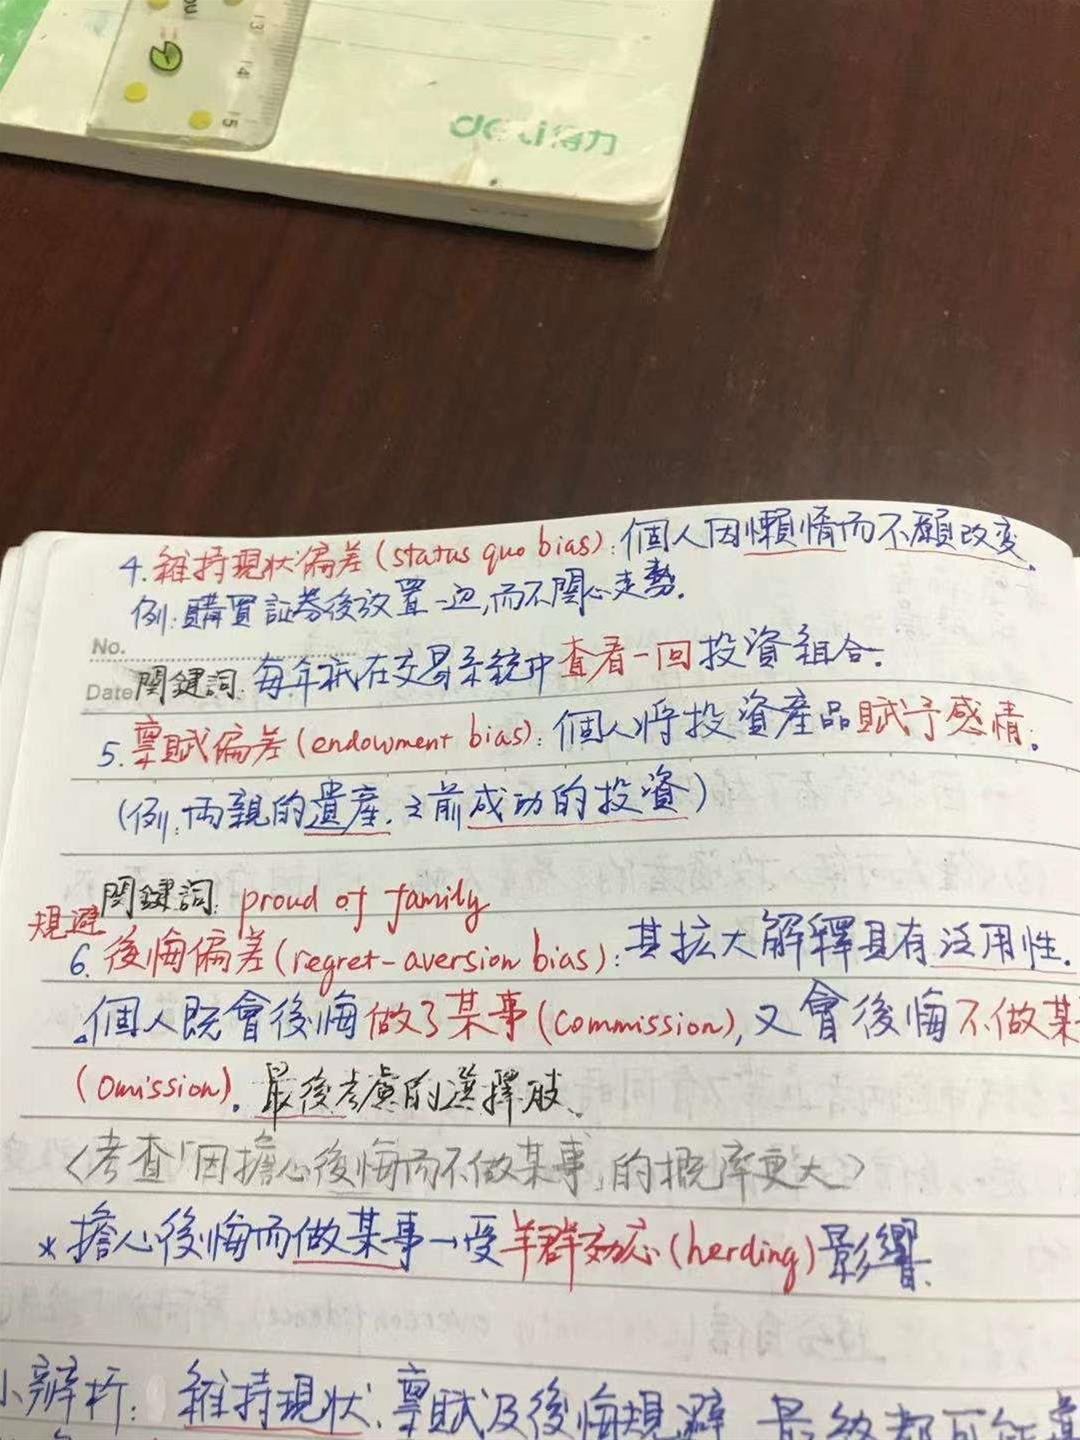 13
14
15
deli得力
4. 維持現狀偏差(status quo bias):個人因懶惰而不願改变.
例:購買証券後放置一边,而不関心走勢.
No.
Date 関鍵詞:每年祇在交易系統中查看一回投資組合.
5. 稟賦偏差(endowment bias):個人将投資産品賦予感情.
(例:両親的遺産.之前成功的投資)
関鍵詞: proud of family
規避
6. 後悔偏差(regret-aversion bias):其拡大解釋具有泛用性.
個人既會後悔做了某事(commission),又會後悔不做某
(omission). 最後考慮的選擇肢.
<考查「因擔心後悔而不做某事」的概率更大>
* 擔心後悔而做某事→受羊群効応(herding)影響.
小辨析: 維持現狀、稟賦及後悔規避